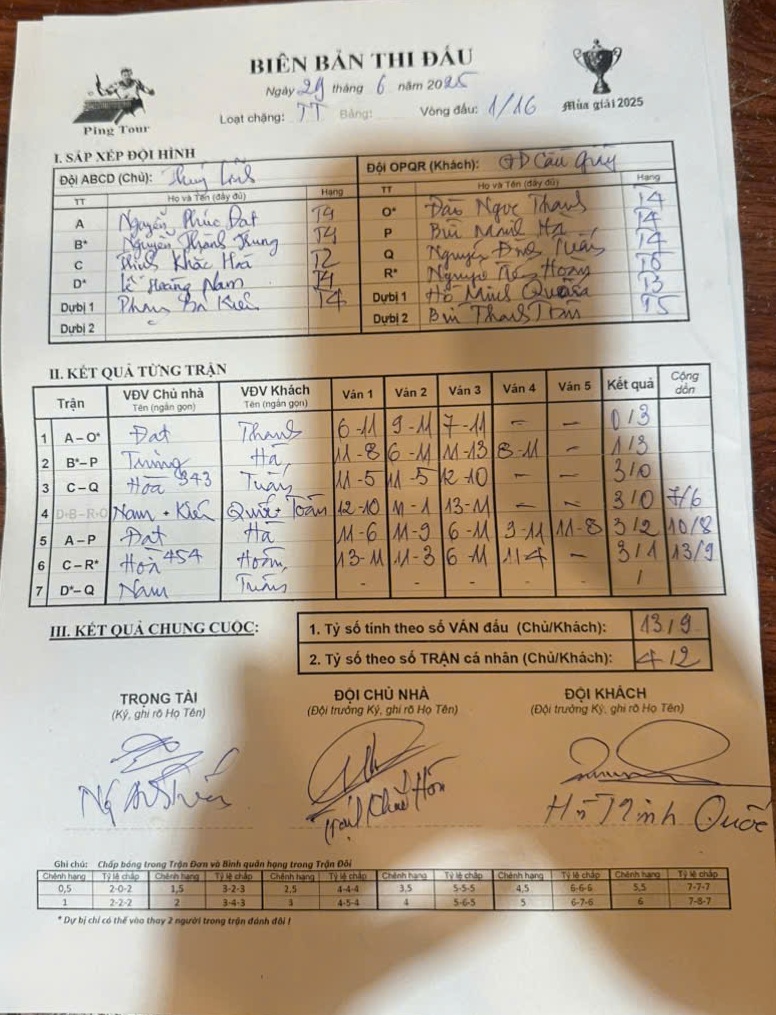 BIÊN BẢN THI ĐẤU
Ngày 29 tháng 6 năm 2025
Loạt chặng: TT Bảng: Vòng đấu: 1/16
Ping Tour
Mùa giải 2025
I. SẮP XẾP ĐỘI HÌNH
Đội ABCD (Chủ): Thuỷ Linh
TT Họ và Tên (đầy đủ) Hạng
A Nguyễn Phúc Đạt T4
B* Nguyễn Thành Trung T4
C Trịnh Khắc Hoà T2
D* Lê Hoàng Nam T4
Dựbị 1 Phạm Bá Kiên T4
Dựbị 2
Đội OPQR (Khách): GĐ Cầu Giấy
TT Họ và Tên (đầy đủ) Hạng
O* Đào Ngọc Thanh T4
P Bùi Mạnh Hà T4
Q Nguyễn Đình Tuấn T4
R* Nguyễn Tiến Hoàn T6
Dựbị 1 Hồ Minh Quốc T3
Dựbị 2 Bùi Thanh Toàn T5
II. KẾT QUẢ TỪNG TRẬN
Trận VĐV Chủ nhà Tên (ngắn gọn) VĐV Khách Tên (ngắn gọn) Ván 1 Ván 2 Ván 3 Ván 4 Ván 5 Kết quả Cộng dồn
1 A – O* Đạt Thanh 6-11 9-11 7-11 – – 0/3
2 B*– P Trung Hà 11-8 6-11 11-13 8-11 – 1/3
3 C – Q Hoà 343 Tuấn 11-5 11-5 12-10 – – 3/0
4 D+B–R+O Nam + Kiên Quốc + Toàn 12-10 11-1 13-11 – – 3/0 7/6
5 A – P Đạt Hà 11-6 11-9 6-11 9-11 11-8 3/2 10/8
6 C – R* Hoà 454 Hoàn 13-11 11-3 6-11 114 – 3/1 13/9
7 D*– Q Nam Tuấn - - - - - /
III. KẾT QUẢ CHUNG CUỘC:
1. Tỷ số tính theo số VÁN đấu (Chủ/Khách): 13/9
2. Tỷ số theo số TRẬN cá nhân (Chủ/Khách): 4/2
TRỌNG TÀI
(Ký, ghi rõ Họ Tên)
ĐỘI CHỦ NHÀ
(Đội trưởng Ký, ghi rõ Họ Tên)
ĐỘI KHÁCH
(Đội trưởng Ký, ghi rõ Họ Tên)
Hồ Minh Quốc
Ghi chú: Chấp bóng trong Trận Đơn và Bình quân hạng trong Trận Đôi
Chênh hạng Tỷ lệ chấp Chênh hạng Tỷ lệ chấp Chênh hạng Tỷ lệ chấp Chênh hạng Tỷ lệ chấp Chênh hạng Tỷ lệ chấp Chênh hạng Tỷ lệ chấp
0,5 2-0-2 1,5 3-2-3 2,5 4-4-4 3,5 5-5-5 4,5 6-6-6 5,5 7-7-7
1 2-2-2 2 3-4-3 3 4-5-4 4 5-6-5 5 6-7-6 6 7-8-7
* Dự bị chỉ có thể vào thay 2 người trong trận đánh đôi !